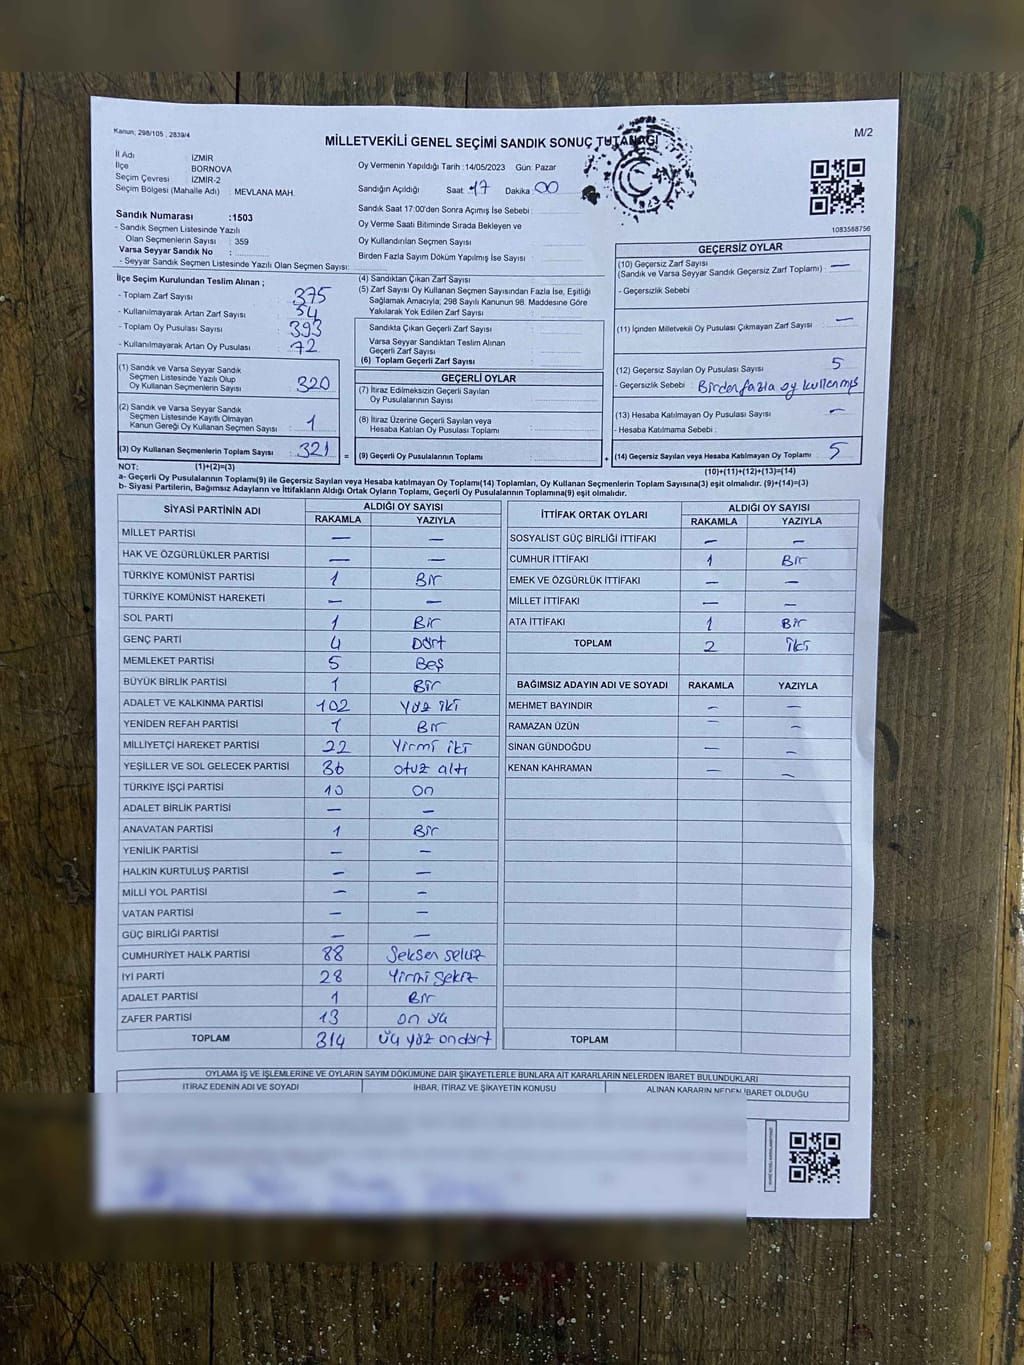 Kanun; 298/105 , 2839/4
MİLLETVEKİLİ GENEL SEÇİMİ SANDIK SONUÇ TUTANAĞI
M/2
İl Adı : İZMİR
İlçe : BORNOVA
Seçim Çevresi : İZMİR-2
Seçim Bölgesi (Mahalle Adı) : MEVLANA MAH.
Oy Vermenin Yapıldığı Tarih :14/05/2023 Gün: Pazar
Sandığın Açıldığı Saat : 17 Dakika : 00
Sandık Saat 17:00'den Sonra Açımış İse Sebebi :
Oy Verme Saati Bitiminde Sırada Bekleyen ve
Oy Kullandırılan Seçmen Sayısı
Birden Fazla Sayım Döküm Yapılmış İse Sayısı :
1083568756
Sandık Numarası :1503
- Sandık Seçmen Listesinde Yazılı
Olan Seçmenlerin Sayısı : 359
Varsa Seyyar Sandık No :
- Seyyar Sandık Seçmen Listesinde Yazılı Olan Seçmen Sayısı:
İlçe Seçim Kurulundan Teslim Alınan ;
- Toplam Zarf Sayısı : 375
- Kullanılmayarak Artan Zarf Sayısı : 54
- Toplam Oy Pusulası Sayısı : 393
- Kullanılmayarak Artan Oy Pusulası : 72
(1) Sandık ve Varsa Seyyar Sandık
Seçmen Listesinde Yazılı Olup
Oy Kullanan Seçmenlerin Sayısı : 320
(2) Sandık ve Varsa Seyyar Sandık
Seçmen Listesinde Kayıtlı Olmayan
Kanun Gereği Oy Kullanan Seçmen Sayısı : 1
(3) Oy Kullanan Seçmenlerin Toplam Sayısı : 321 =
(4) Sandıktan Çıkan Zarf Sayısı
(5) Zarf Sayısı Oy Kullanan Seçmen Sayısından Fazla İse, Eşitliği
Sağlamak Amacıyla; 298 Sayılı Kanunun 98. Maddesine Göre
Yakılarak Yok Edilen Zarf Sayısı :
Sandıkta Çıkan Geçerli Zarf Sayısı :
Varsa Seyyar Sandıktan Teslim Alınan
Geçerli Zarf Sayısı :
(6) Toplam Geçerli Zarf Sayısı :
GEÇERLİ OYLAR
(7) İtiraz Edilmeksizin Geçerli Sayılan
Oy Pusulalarının Sayısı :
(8) İtiraz Üzerine Geçerli Sayılan veya
Hesaba Katılan Oy Pusulası Toplamı :
(9) Geçerli Oy Pusulalarının Toplamı : +
GEÇERSİZ OYLAR
(10) Geçersiz Zarf Sayısı
(Sandık ve Varsa Seyyar Sandık Geçersiz Zarf Toplamı) : —
- Geçersizlik Sebebi :
(11) İçinden Milletvekili Oy Pusulası Çıkmayan Zarf Sayısı : —
(12) Geçersiz Sayılan Oy Pusulası Sayısı : 5
- Geçersizlik Sebebi : Birden fazla oy kullanmış
(13) Hesaba Katılmayan Oy Pusulası Sayısı : —
- Hesaba Katılmama Sebebi :
(14) Geçersiz Sayılan veya Hesaba Katılmayan Oy Toplamı : 5
NOT: (1)+(2)=(3)
(10)+(11)+(12)+(13)=(14)
a- Geçerli Oy Pusulalarının Toplamı(9) ile Geçersiz Sayılan veya Hesaba Katılmayan Oy Toplamı(14) Toplamları, Oy Kullanan Seçmenlerin Toplam Sayısına(3) eşit olmalıdır. (9)+(14)=(3)
b- Siyasi Partilerin, Bağımsız Adayların ve İttifakların Aldığı Ortak Oyların Toplamı, Geçerli Oy Pusulalarının Toplamına(9) eşit olmalıdır.
SİYASİ PARTİNİN ADI ALDIĞI OY SAYISI
RAKAMLA YAZIYLA
MİLLET PARTİSİ — —
HAK VE ÖZGÜRLÜKLER PARTİSİ — —
TÜRKİYE KOMÜNİST PARTİSİ 1 Bir
TÜRKİYE KOMÜNİST HAREKETİ — —
SOL PARTİ 1 Bir
GENÇ PARTİ 4 Dört
MEMLEKET PARTİSİ 5 Beş
BÜYÜK BİRLİK PARTİSİ 1 Bir
ADALET VE KALKINMA PARTİSİ 102 Yüz iki
YENİDEN REFAH PARTİSİ 1 Bir
MİLLİYETÇİ HAREKET PARTİSİ 22 Yirmi iki
YEŞİLLER VE SOL GELECEK PARTİSİ 36 otuz altı
TÜRKİYE İŞÇİ PARTİSİ 10 on
ADALET BİRLİK PARTİSİ — —
ANAVATAN PARTİSİ 1 Bir
YENİLİK PARTİSİ — —
HALKIN KURTULUŞ PARTİSİ — —
MİLLİ YOL PARTİSİ — —
VATAN PARTİSİ — —
GÜÇ BİRLİĞİ PARTİSİ — —
CUMHURİYET HALK PARTİSİ 88 Seksen sekiz
İYİ PARTİ 28 Yirmi sekiz
ADALET PARTİSİ 1 Bir
ZAFER PARTİSİ 13 on üç
TOPLAM 314 üç yüz ondört
İTTİFAK ORTAK OYLARI ALDIĞI OY SAYISI
RAKAMLA YAZIYLA
SOSYALİST GÜÇ BİRLİĞİ İTTİFAKI — —
CUMHUR İTTİFAKI 1 Bir
EMEK VE ÖZGÜRLÜK İTTİFAKI — —
MİLLET İTTİFAKI — —
ATA İTTİFAKI 1 Bir
TOPLAM 2 iki
BAĞIMSIZ ADAYIN ADI VE SOYADI RAKAMLA YAZIYLA
MEHMET BAYINDIR — —
RAMAZAN ÜZÜN — —
SİNAN GÜNDOĞDU — —
KENAN KAHRAMAN — —
TOPLAM
OYLAMA İŞ VE İŞLEMLERİNE VE OYLARIN SAYIM DÖKÜMÜNE DAİR ŞİKAYETLERLE BUNLARA AİT KARARLARIN NELERDEN İBARET BULUNDUKLARI
İTİRAZ EDENİN ADI VE SOYADI İHBAR, İTİRAZ VE ŞİKAYETİN KONUSU ALINAN KARARIN NEDEN İBARET OLDUĞU